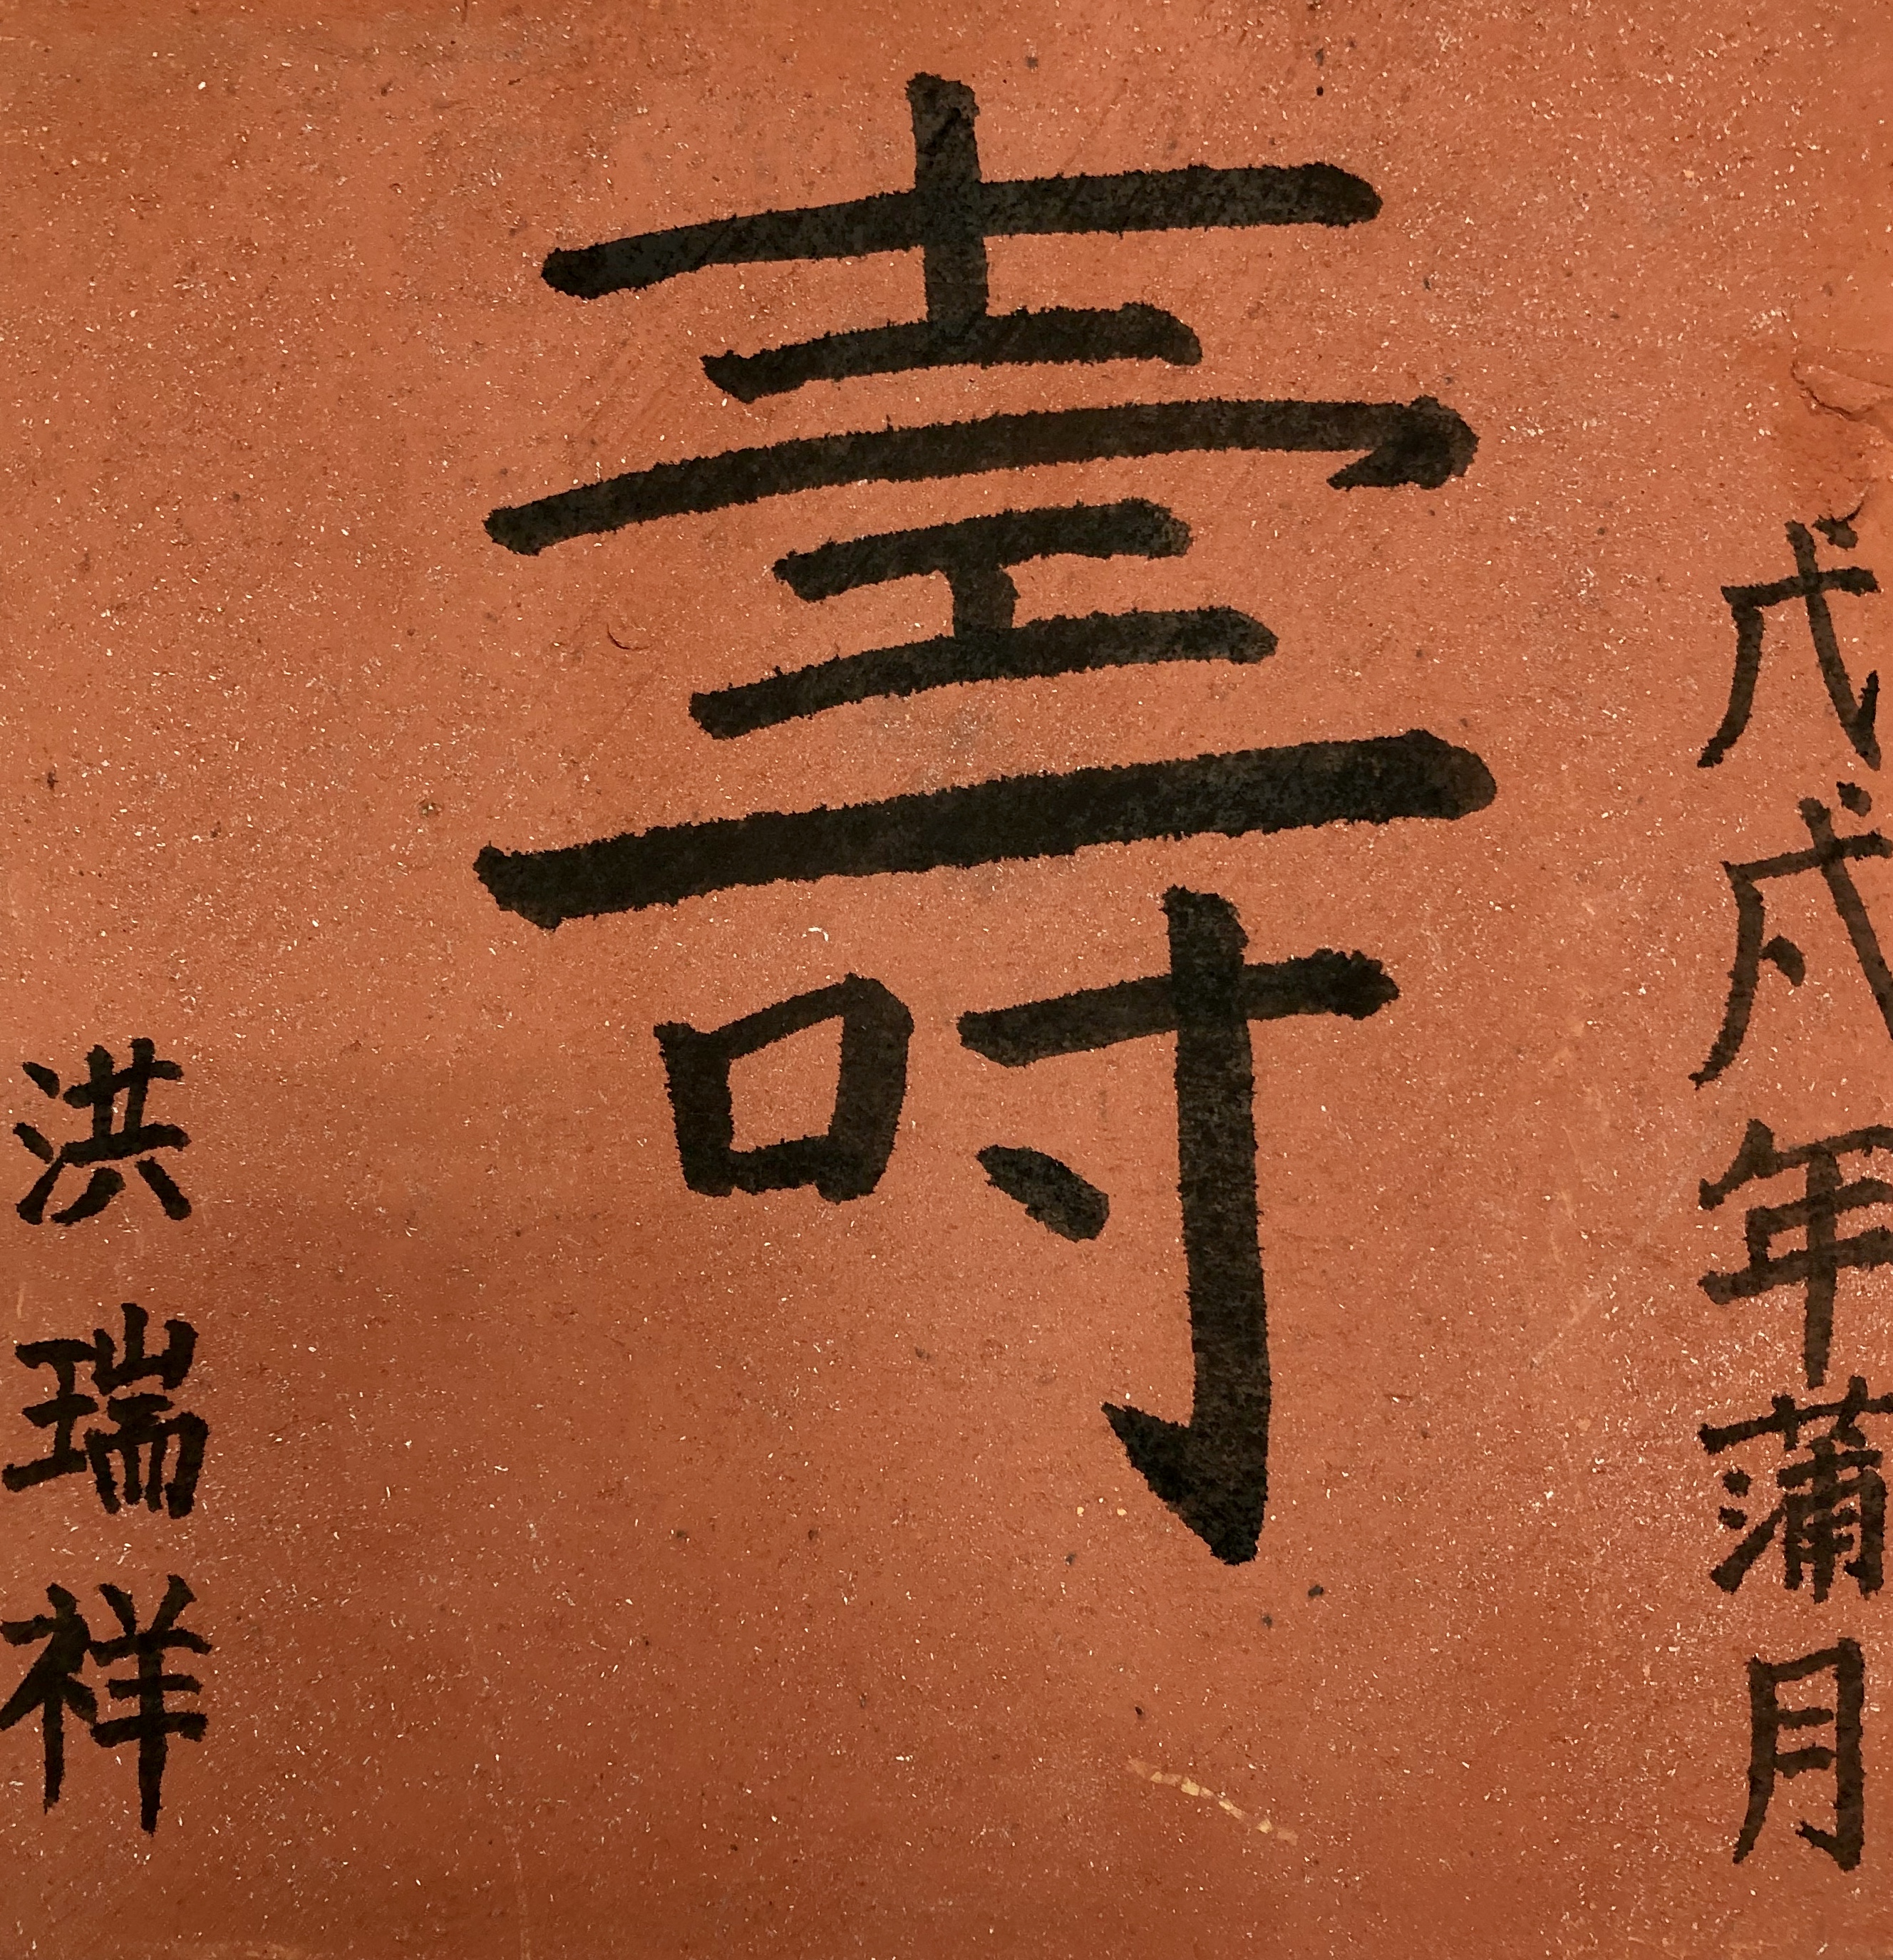 戊戌年蒲月
壽
洪瑞祥